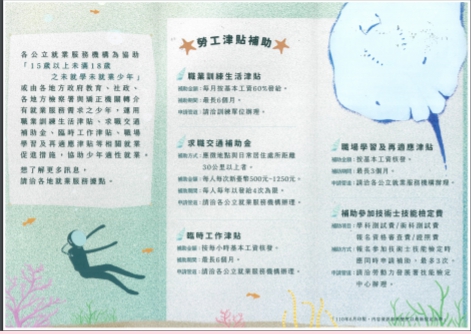 各公立就業服務機構為協助
「15歲以上未滿18歲
之未就學未就業少年」
或由各地方政府教育、社政、
各地方檢察署與矯正機關轉介
有就業服務需求之少年，運用
職業訓練生活津貼、求職交通
補助金、臨時工作津貼、職場
學習及再適應津貼等相關就業
促進措施，協助少年適性就業。
想了解更多訊息，
請洽各地就業服務據點。
勞工津貼補助
職業訓練生活津貼
補助金額：每月按基本工資60%發給。
補助期間：最長6個月。
申請管道：請洽訓練單位辦理。
求職交通補助金
補助方式：應徵地點與日常居住處所距離
30公里以上者。
補助金額：每人每次新臺幣500元~1250元。
補助期間：每人每年以發給4次為限。
申請管道：請洽各公立就業服務機構辦理。
臨時工作津貼
補助金額：按每小時基本工資核發。
補助期間：最長6個月。
申請管道：請洽各公立就業服務機構辦理。
職場學習及再適應津貼
補助金額：按基本工資核發。
補助期間：最長3個月。
申請管道：請洽各公立就業服務機構辦理。
補助參加技術士技能檢定費
補助項目：學科測試費/術科測試費
報名資格審查費/證照費
補助方式：報名參加技術士技能檢定時
應同時申請補助，最多3次。
申請管道：請洽勞動力發展署技能檢定
中心辦理。